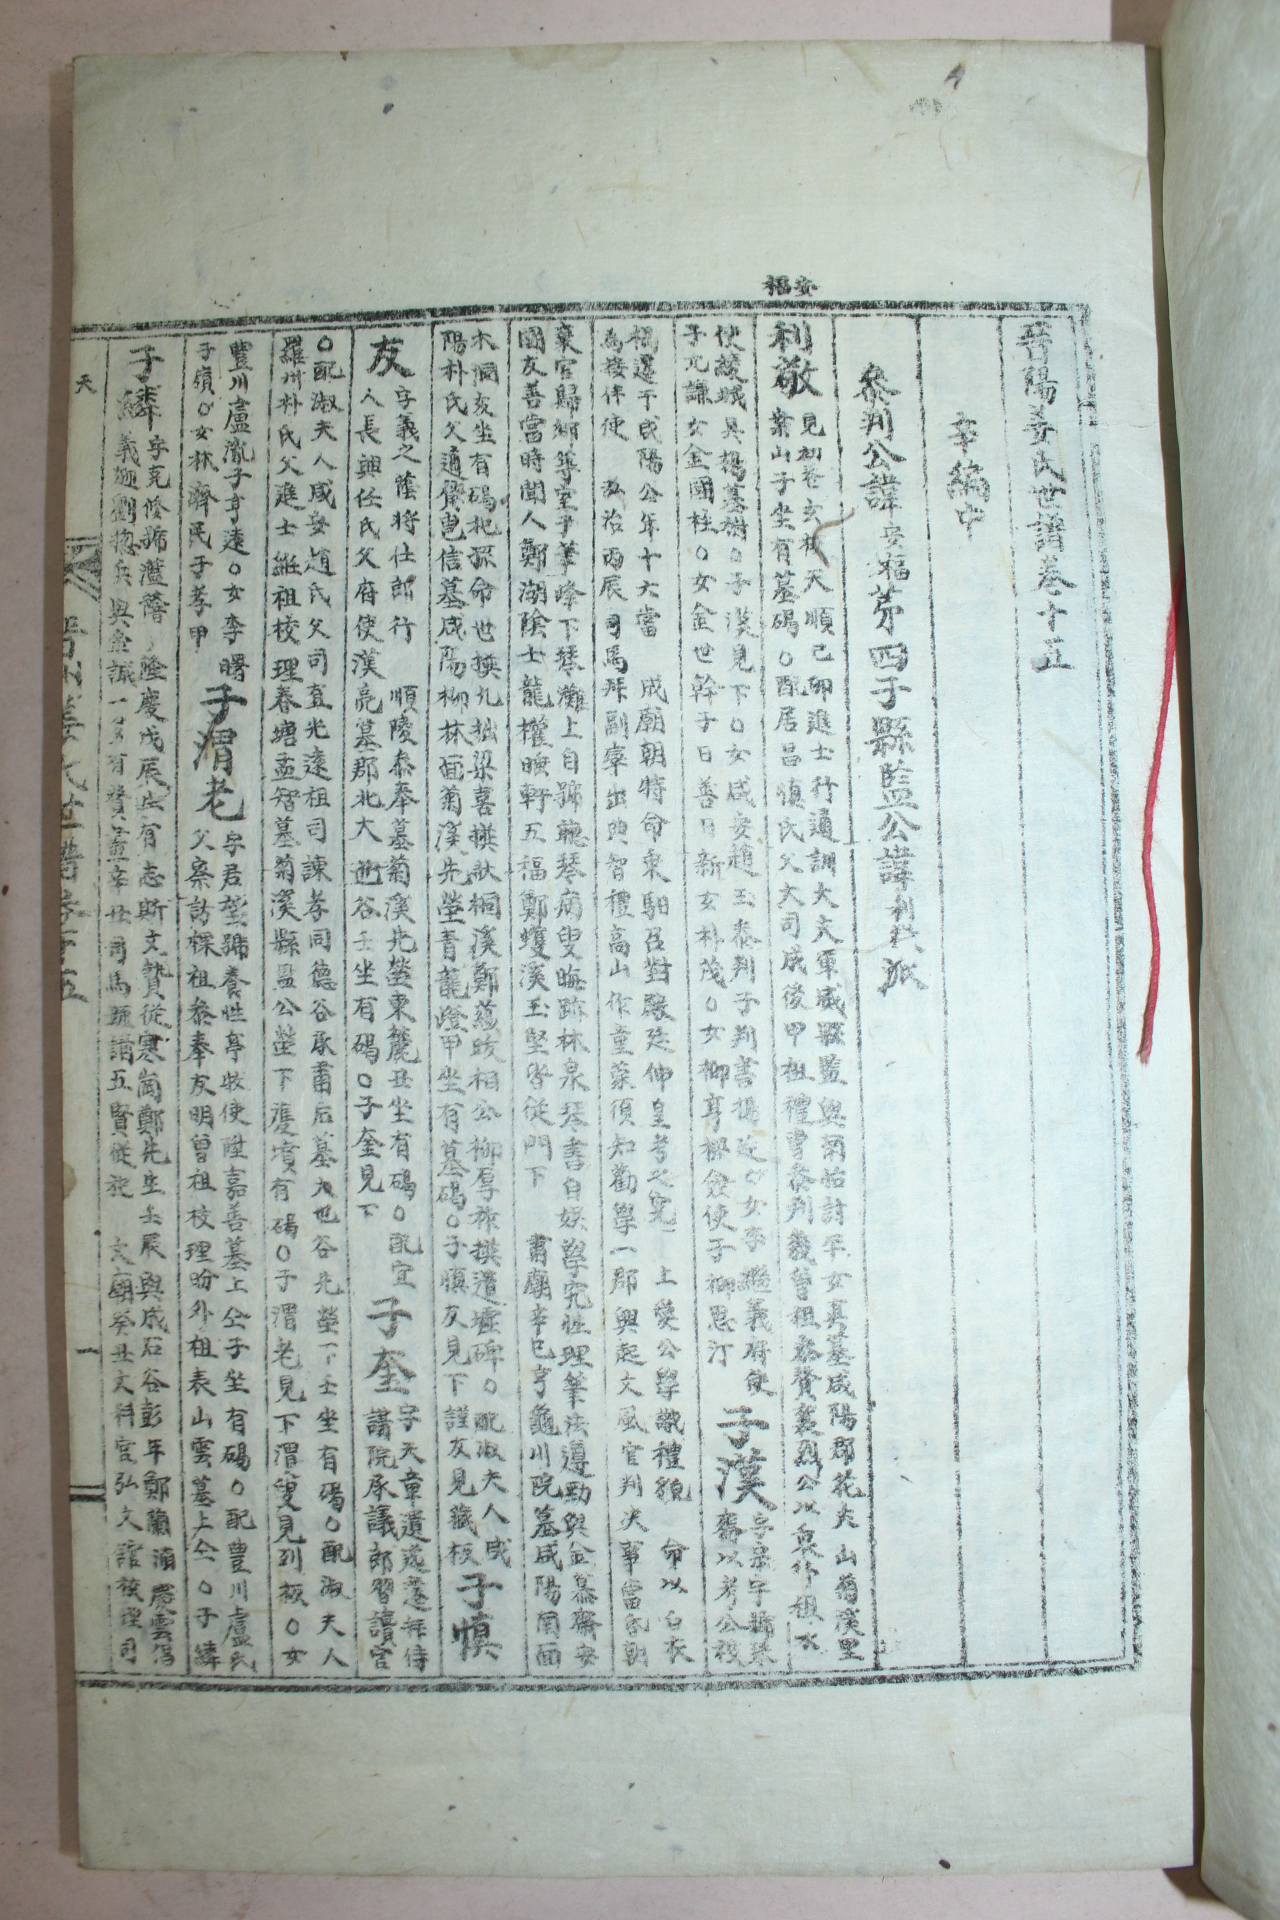 安福
晉陽姜氏世譜卷十五
辛編中
叅判公諱安福第四子縣監公諱利敬派
利敬
見初卷玄板天順己卯進士行通訓大夫軍威縣監與弟佔討平女眞墓咸陽郡花夫山菊溪里
案山子坐有墓碣○配居昌愼氏父大司成後甲祖禮曹叅判幾曾祖叅贊襄烈公以衷外祖水
使護城吳楊墓祔○子漢見下○女咸安趙玉泰判子判書
子允謙女金國柱○女金世幹子日善日新女朴茂○女柳亨樑僉使子柳思汀
子漢
字宗宇號琴
齋以考公被
禍遷于咸陽公年十六當 成廟朝特命乘馹召對殿廷伸皇考之冤 上愛公學識禮貌 命以白衣
爲接伴使 弘治丙辰司馬拜副率出典智禮高山作童蒙須知勸學一郡興起文風官判決事當昏朝
棄官歸鄕築室于華峰下琴灘上自號聽琴病叟晦跡林泉琴書自娛學究性理筆法遵勁與金慕齋安
國友善當時聞人鄭湖陰士龍權睡軒五福鄭蠖溪玉堅皆從門下 肅廟辛巳享龜川院墓咸陽南面
木洞亥坐有碣杞孫命世撰九拙梁喜撰狀桐溪鄭蘊跋相公柳厚祚撰遺墟碑○配淑夫人咸
陽朴氏父通贊逸信墓咸陽柳林面菊溪先塋靑龍嶝甲坐有墓碣○子愼友見下謹友見藏板
子愼
友
字義之蔭將仕郞行 順陵叅奉墓菊溪先塋東麓丑坐有碣○配宜
人長興任氏父府使漢亮墓郡北大迯谷壬坐有碣○子奎見下
子奎
字天章遺逸薦拜侍
講院承議郞習讀官
○配淑夫人咸安趙氏父司直光遠祖司諫孝同德谷承肅后墓大也谷先塋下壬坐有碣○配淑夫人
羅州朴氏父進士繼祖校理春塘孟智墓菊溪縣監公塋下雙墳有碣○子渭老見下渭叟見列板○女
豊川盧胤子亨遠○女李曙
子嶺○女林濟民子孝甲
子渭老
字君望號養性亭牧使陞嘉善墓上仝子坐有碣○配豊川盧氏
父察訪檪祖叅奉友明曾祖校理昐外祖表山雲墓上仝○子繗
子繗
字克修號濫蹊 隆慶戊辰生有志斯文贄從寒岡鄭先生壬辰與成石谷彭年鄭蘭溪慶雲倡
義 劉摠兵與 誠一 多有贊畫辛丑司馬疏請五賢從祀 文廟癸丑文科官弘文館校理司
天
晉州姜氏世譜卷十五
一